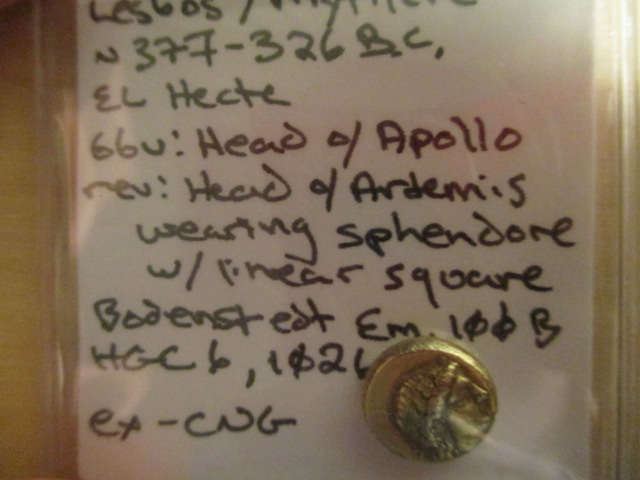 Lesbos / Mytilene
~ 377-326 B.C.
EL Hecte
obv: Head of Apollo
rev: Head of Artemis
wearing sphendone
w/ linear square
Bodenstedt Em. 100B
HGC 6, 1026
ex-CNG